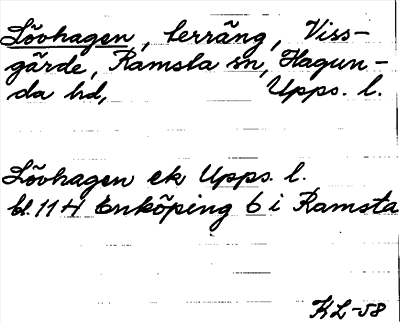 Lövhagen, terräng, Viss-
gärde, Ramsta sn, Hagun-
da hd, Upps. l.
Lövhagen ek Upps. l.
bl. 114 Enköping 6 i Ramsta
KL-58